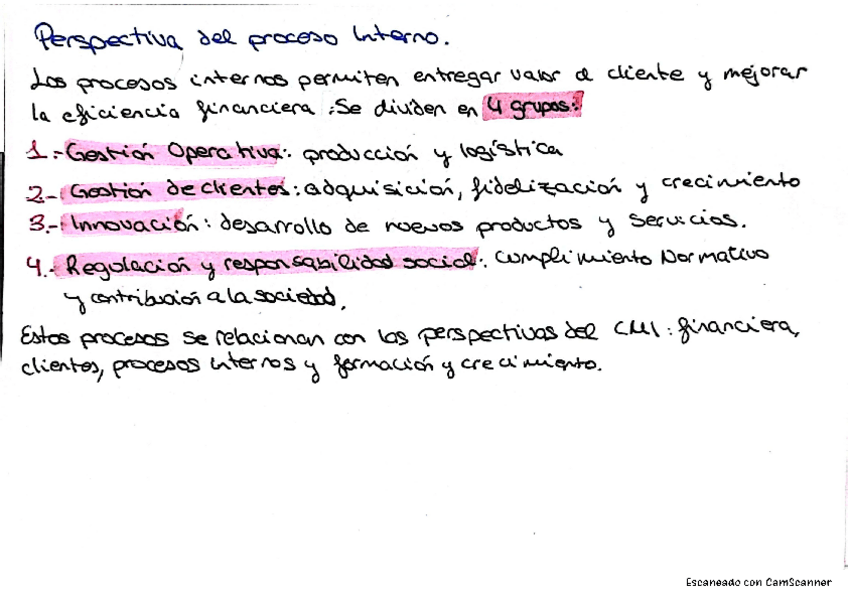 Perspectiva del proceso Interno.
Los procesos internos permiten entregar valor al cliente y mejorar
la eficiencia financiera. Se dividen en 4 grupos:
1.- Gestión Operativa: producción y logística
2.- Gestión de clientes: adquisición, fidelización y crecimiento
3.- Innovación: desarrollo de nuevos productos y servicios.
4.- Regulación y responsabilidad social: Cumplimiento Normativo
y contribución a la sociedad.
Estos procesos se relacionan con las perspectivas del CMI: financiera,
clientes, procesos internos y formación y crecimiento.
Escaneado con CamScanner